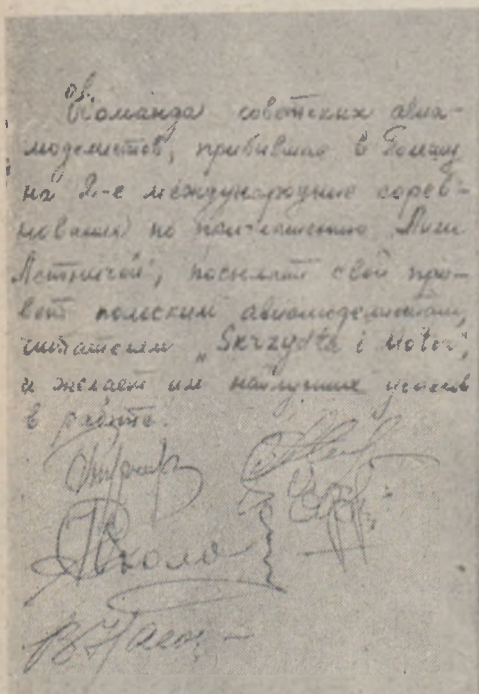 Команда советских авиа-
моделистов, прибывшая в Польшу
на 2-е международные сорев-
нования по приглашению "Лиги
Лётничей", посылает свой при-
вет польским авиамоделистам,
читателям "Skrzydła i Motor",
и желает им наилучших успехов
в работе.